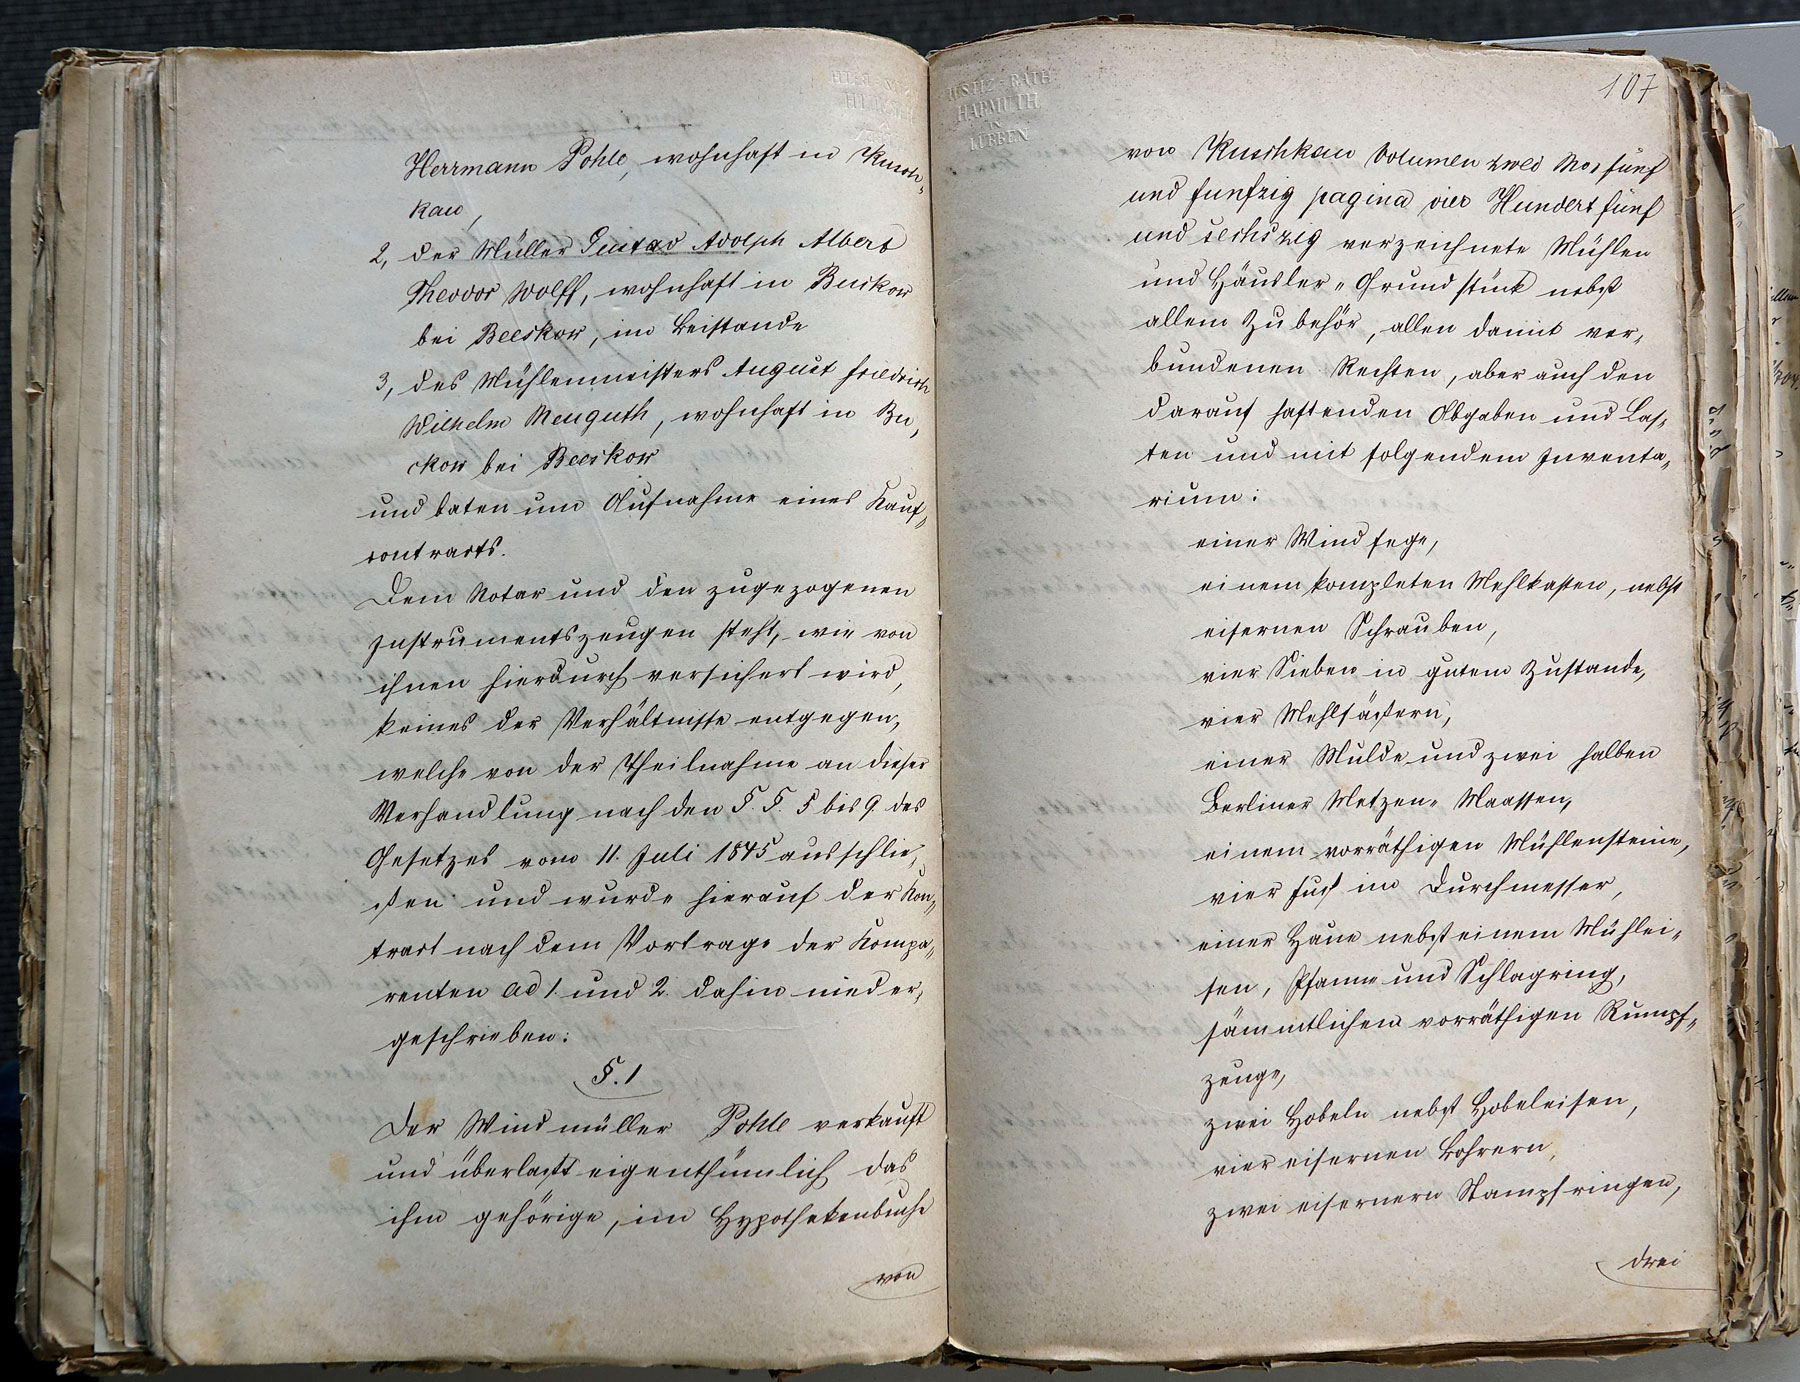 Herrmann Pohle, wohnhaft in Kusch-
kau,
2, der Müller Gustav Adolph Albert
Theodor Wolff, wohnhaft in Buckow
bei Beeskow, im Beistande
3, des Mühlenmeisters August Friedrich
Wilhelm Neuguth, wohnhaft in Bu-
ckow bei Beeskow
und baten um Aufnahme eines Kauf-
contracts.
Dem Notar und den zugezogenen
Instrumentszeugen steht, wie von
ihnen hierdurch versichert wird,
keines der Verhältnisse entgegen,
welche von der Theilnahme an dieser
Verhandlung nach den §. §. 5 bis 9 des
Gesetzes vom 11. Juli 1845 ausschlie-
ßen und wurde hierauf der Kon-
tract nach dem Vortrage der Kompa-
renten ad 1. und 2. dahin nieder-
geschrieben:
§. 1
Der Windmüller Pohle verkauft
und überlaßt eigenthümlich das
ihm gehörige, im Hypothekenbuche
von
JUSTIZ-RATH
HARMUTH
IN
LÜBBEN
107
von Kuschkau Volumen zwei Nro fünf
und funfzig pagina vier Hundert fünf
und sechszig verzeichnete Mühlen
und Häusler-Grundstück nebst
allem Zubehör, allen damit ver-
bundenen Rechten, aber auch den
darauf haftenden Abgaben und Las-
ten und mit folgendem Inventa-
rium:
einer Windfege,
einem kompleten Mehlkasten, nebst
eisernen Schrauben,
vier Sieben in gutem Zustande,
vier Mehlfässern,
einer Mulde und zwei halben
Berliner Metzen-Maassen,
einem vorräthigen Mühlensteine,
vier Fuß im Durchmesser,
einer Haue nebst einem Mühlei-
sen, Pfanne und Schlagring,
sämmtlichem vorräthigen Rumpf-
zeuge,
zwei Hobeln nebst Hobeleisen,
vier eisernen Bohrern,
zwei eisernern Stampfringen,
drei